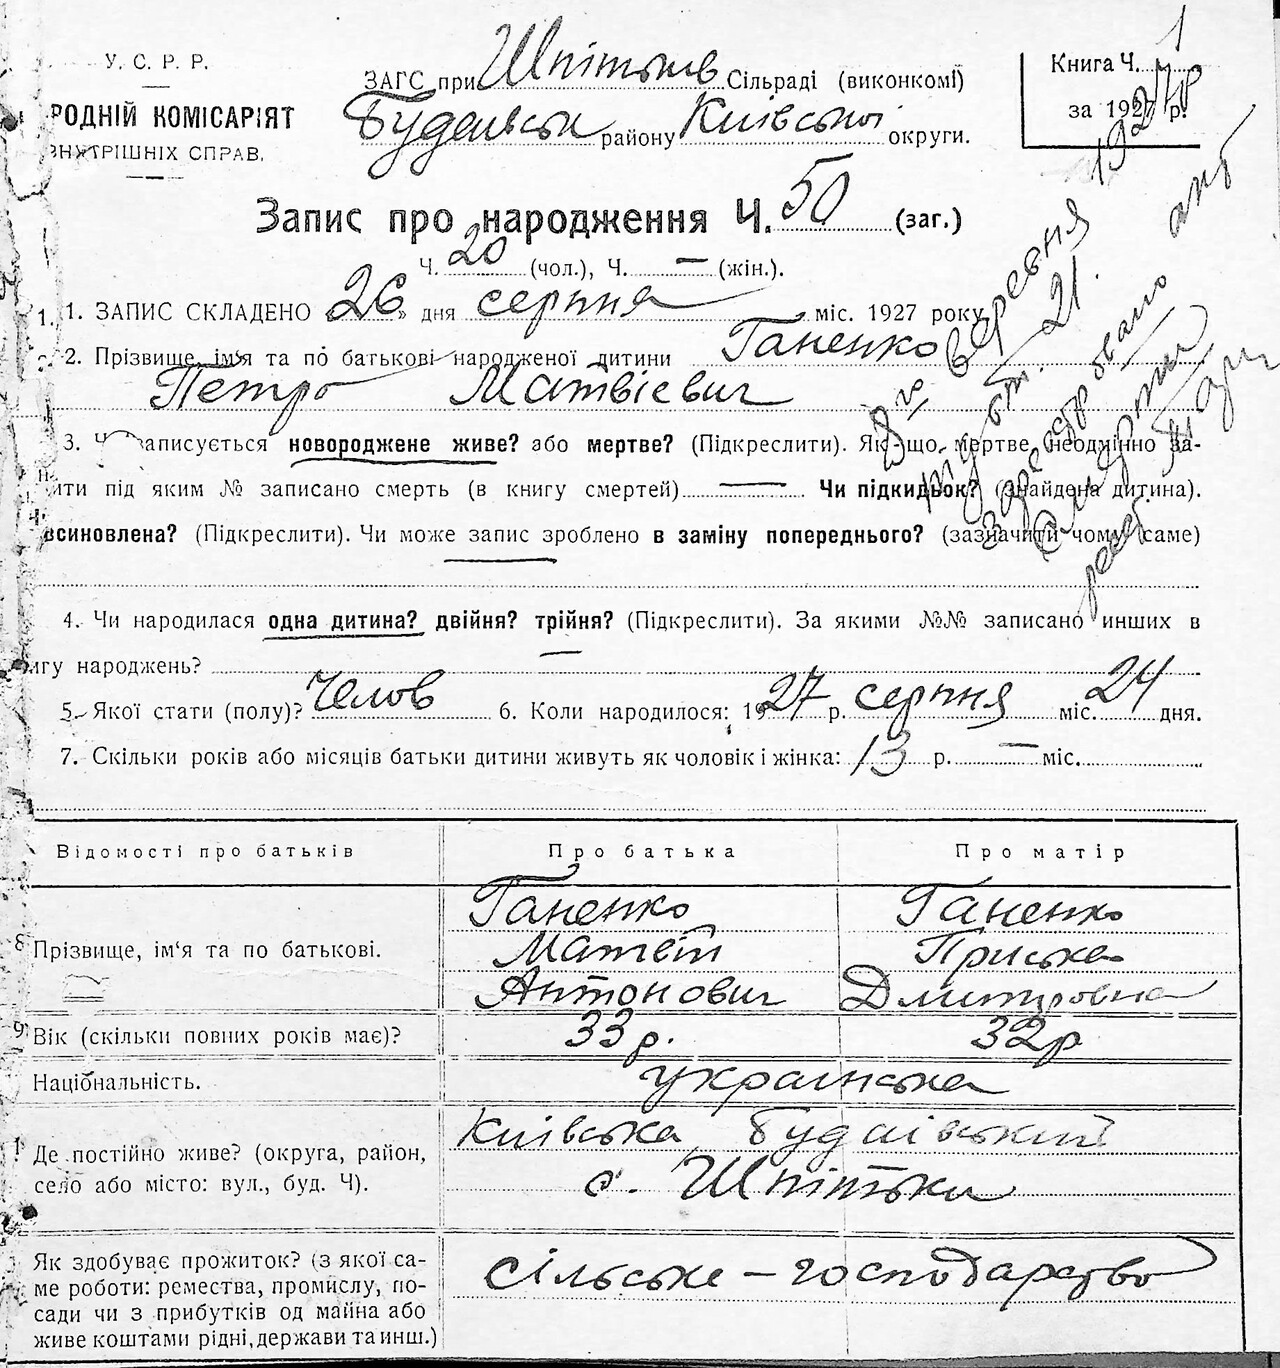 У. С. Р. Р.
РОДНІЙ КОМІСАРІЯТ
ВНУТРІШНІХ СПРАВ.
ЗАГС при Шпітьків Сільраді (виконкомі)
Будаївськ району Київської округи.
Книга Ч. 1
за 1927 р.
Запис про народження Ч. 50 (заг.)
Ч. 20 (чол.), Ч. — (жін.).
1. 1. ЗАПИС СКЛАДЕНО 26 дня серпня міс. 1927 року
2. Прізвище, ім'я та по батькові народженої дитини Ганенко
Петро Матвієвич
3. записується новороджене живе? або мертве? (Підкреслити). Якщо мертве, неодмінно за-
ити під яким № записано смерть (в книгу смертей) — Чи підкидьок? (знайдена дитина).
всиновлена? (Підкреслити). Чи може запис зроблено в заміну попереднього? (зазначити чому саме)
вересня 192
21.
смерти
4. Чи народилася одна дитина? двійня? трійня? (Підкреслити). За якими №№ записано инших в
игу народжень? —
5. Якої стати (полу)? Челов 6. Коли народилося: 1927 р. серпня міс. 24 дня.
7. Скільки років або місяців батьки дитини живуть як чоловік і жінка: 13 р. — міс.
Відомості про батьків Про батька Про матір
8 Прізвище, ім'я та по батькові. Ганенко Ганенко
Матвій Приська
Антонович Дмитровна
9. Вік (скільки повних років має)? 33 р. 32 р
Національність. українська
Де постійно живе? (округа, район, село або місто: вул., буд. Ч). Київська Будаївський
с. Шпітьки
Як здобуває прожиток? (з якої са-
ме роботи: ремества, промислу, по-
сади чи з прибутків од майна або
живе коштами рідні, держави та инш.) сільське – господарство